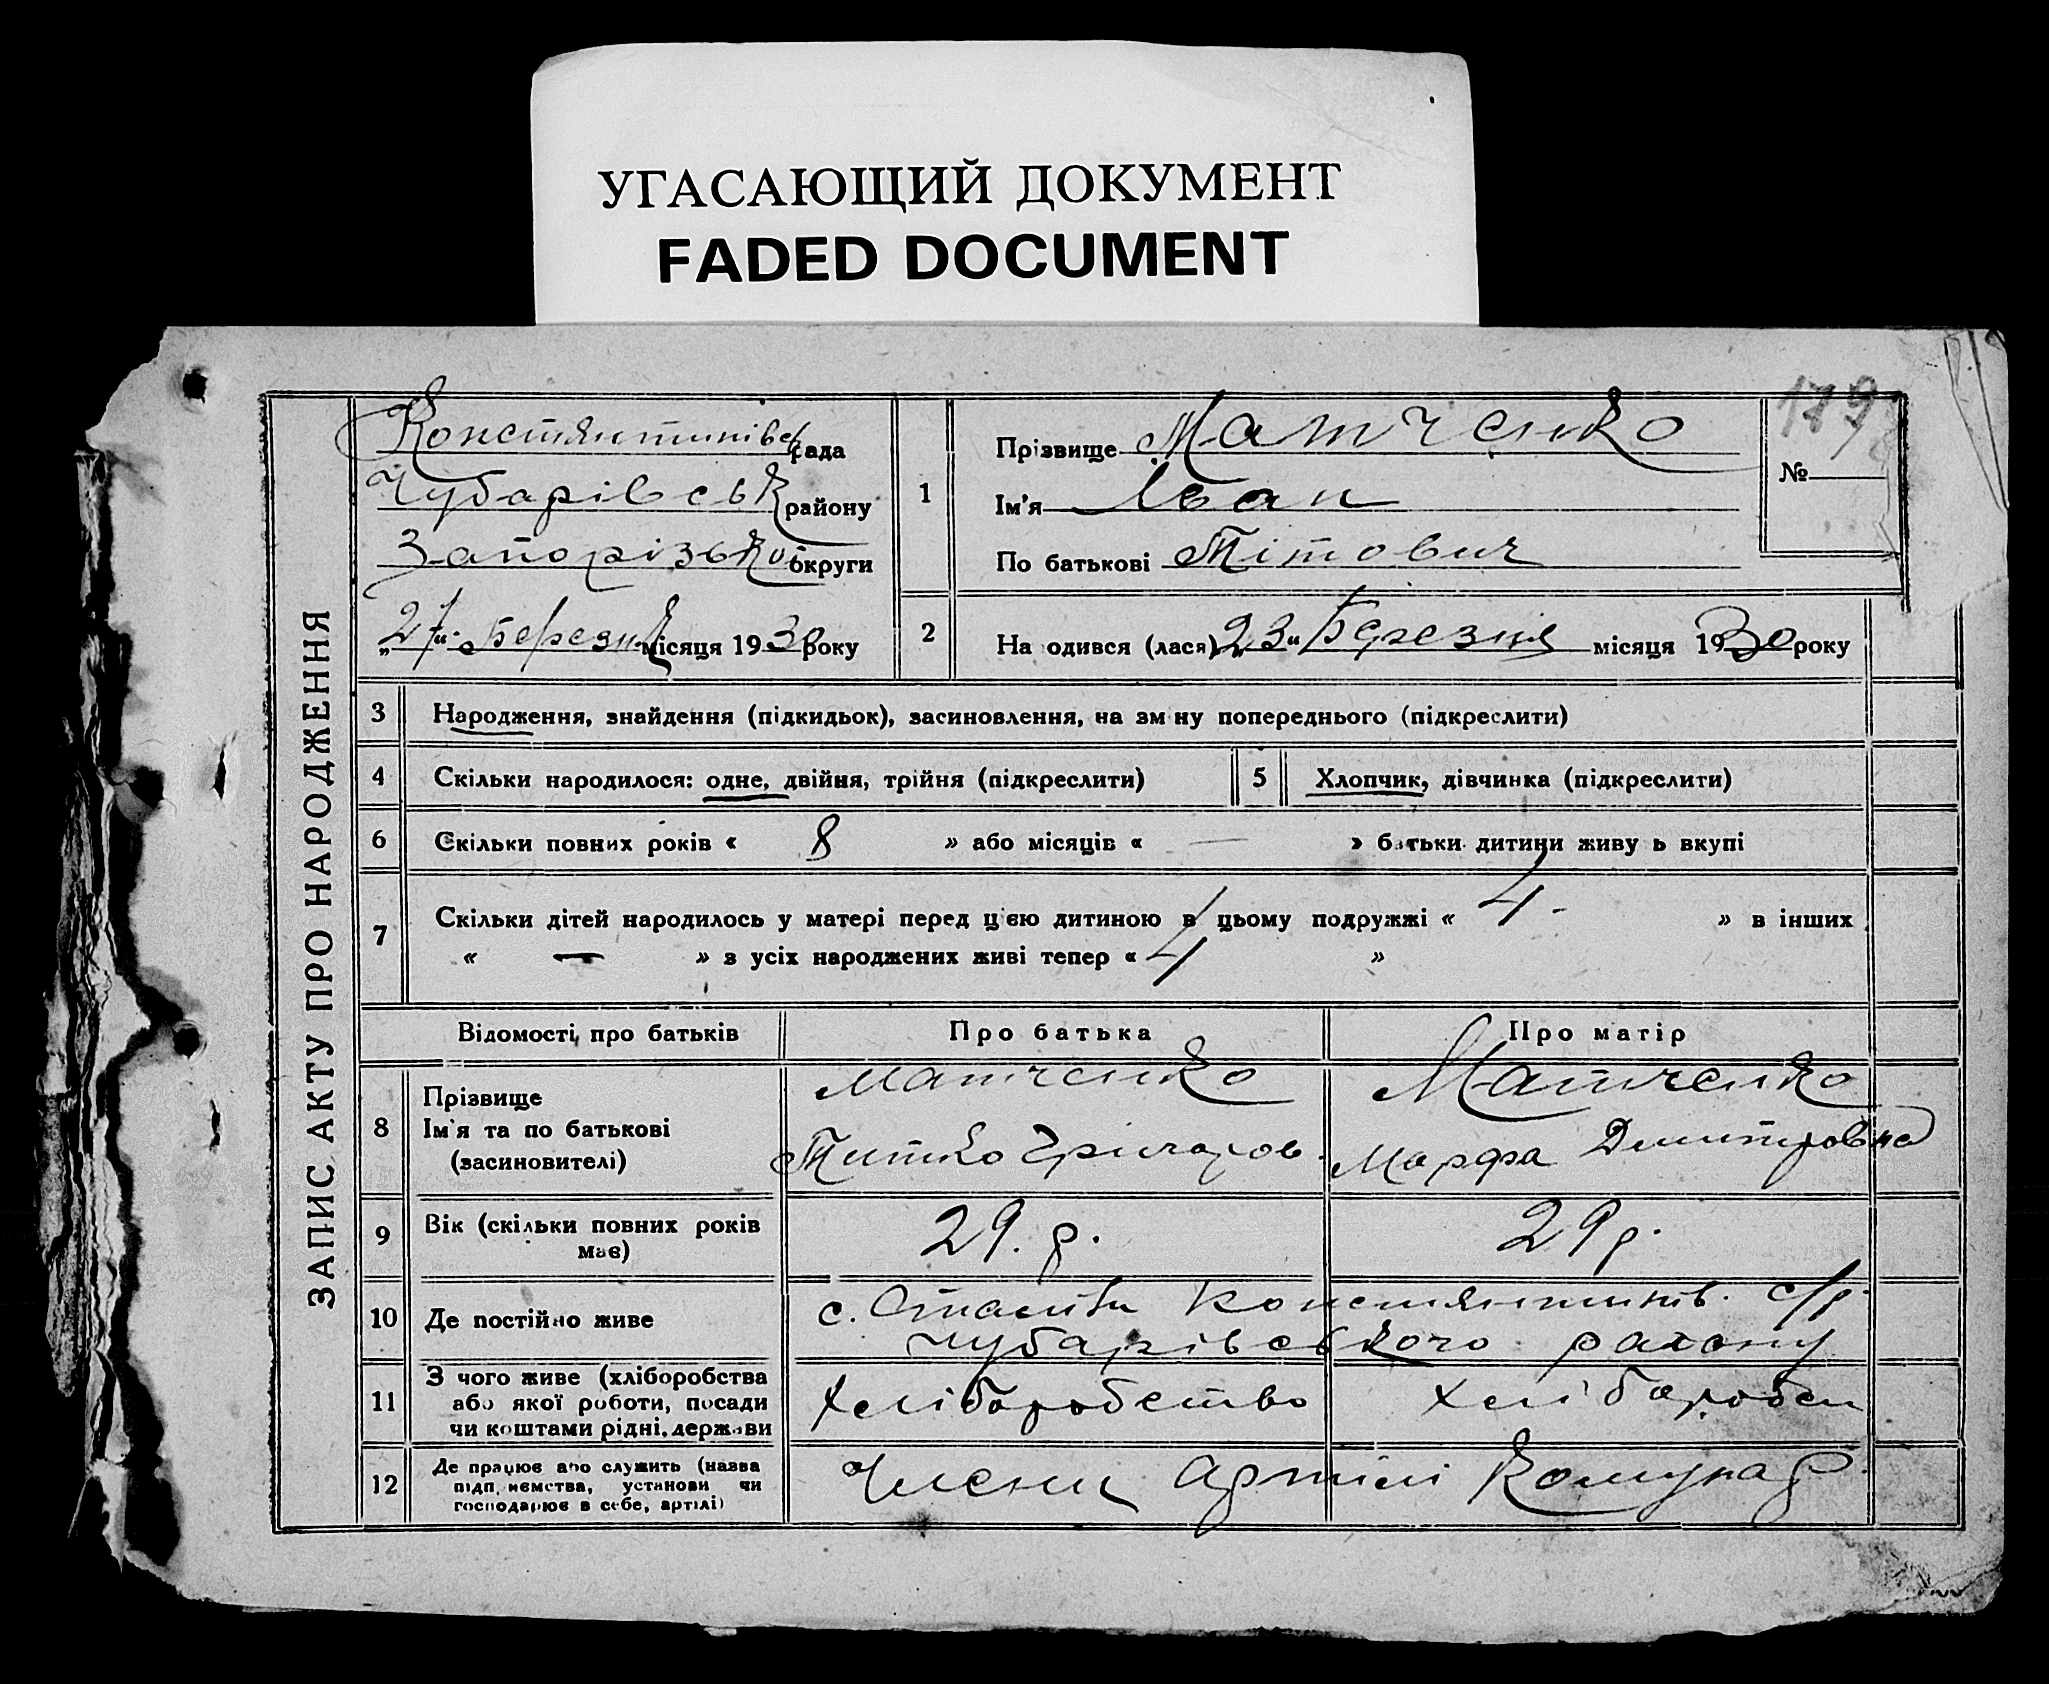 УГАСАЮЩИЙ ДОКУМЕНТ
FADED DOCUMENT
ЗАПИС АКТУ ПРО НАРОДЖЕННЯ
Константинівс рада
Чубарівськ району
Запорізької округи
„27“ Березня місяця 1930 року
1
Прізвище Матченко
Ім'я Іван
По батькові Тітович
179
№
2
На одився (лася) „23“ Березня місяця 1930 року
3 Народження, знайдення (підкидьок), засиновлення, на зм ну попереднього (підкреслити)
4 Скільки народилося: одне, двійня, трійня (підкреслити)
5 Хлопчик, дівчинка (підкреслити)
6 Скільки повних років « 8 » або місяців « — » батьки дитини живу ь вкупі
7 Скільки дітей народилось у матері перед цією дитиною в цьому подружжі « 4 - » в інших
« — » з усіх народжених живі тепер « 4 »
Відомості про батьків Про батька Про матір
8 Прізвище
Ім'я та по батькові
(засиновителі)
Матченко
Титко Грігоров.
Матченко
Марфа Дмитровна
9 Вік (скільки повних років
має)
29. р. 29 р.
10 Де постійно живе
с. Константинів. с/р.
Чубарівського району
11 З чого живе (хліборобства
або якої роботи, посади
чи коштами рідні, держави
Хліборобство Хлібороб
12 Де працює або служить (назва
підп, иємства, установи чи
господарює в себе, артілі)
Члени Артілі Комунар